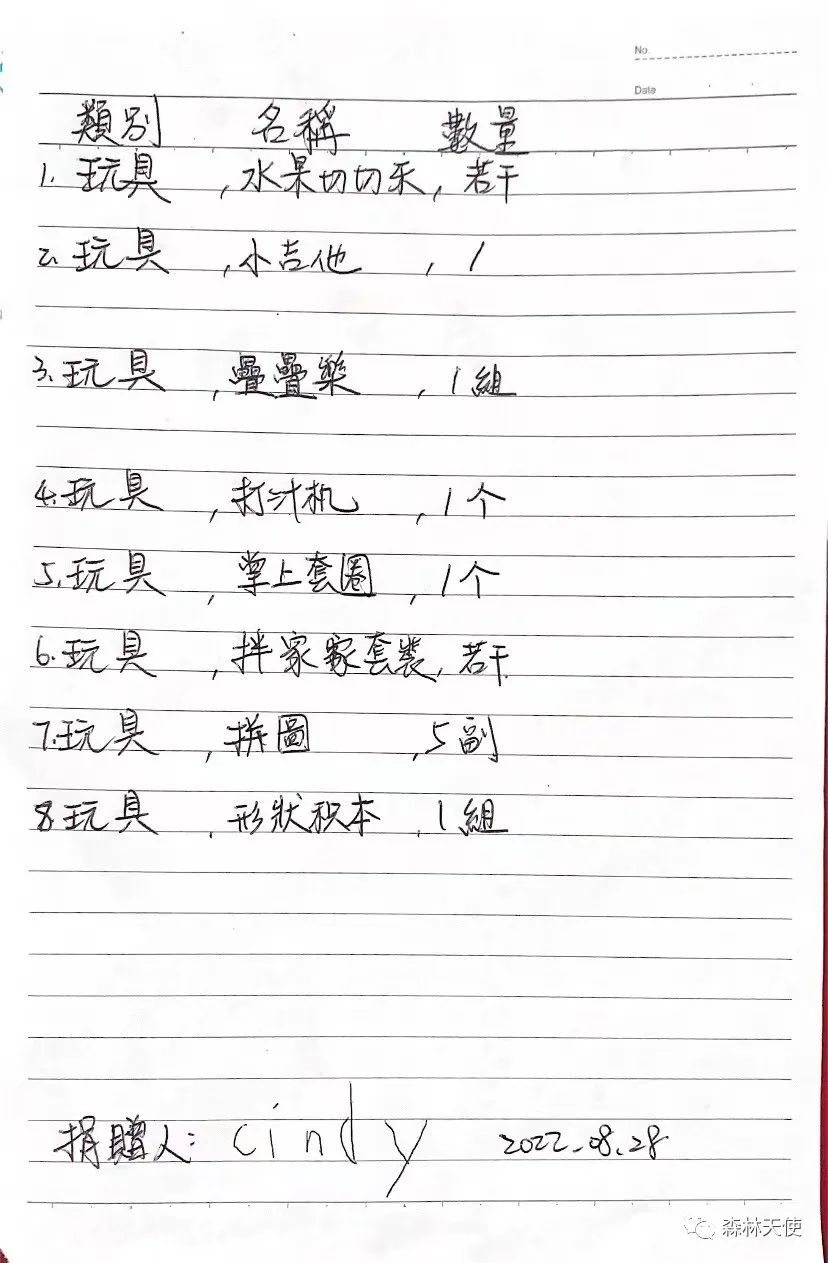 No.
Date
類別 名稱 數量
1. 玩具 , 水果切切乐, 若干
2. 玩具 , 小吉他 , 1
3. 玩具 , 疊疊樂 , 1組
4. 玩具 , 打汁机 , 1个
5. 玩具 , 掌上套圈 , 1个
6. 玩具 , 拌家家套裝, 若干
7. 玩具 , 拼圖 , 5副
8. 玩具 , 形狀积本 , 1組
捐贈人: cindy 2022.08.28
森林天使